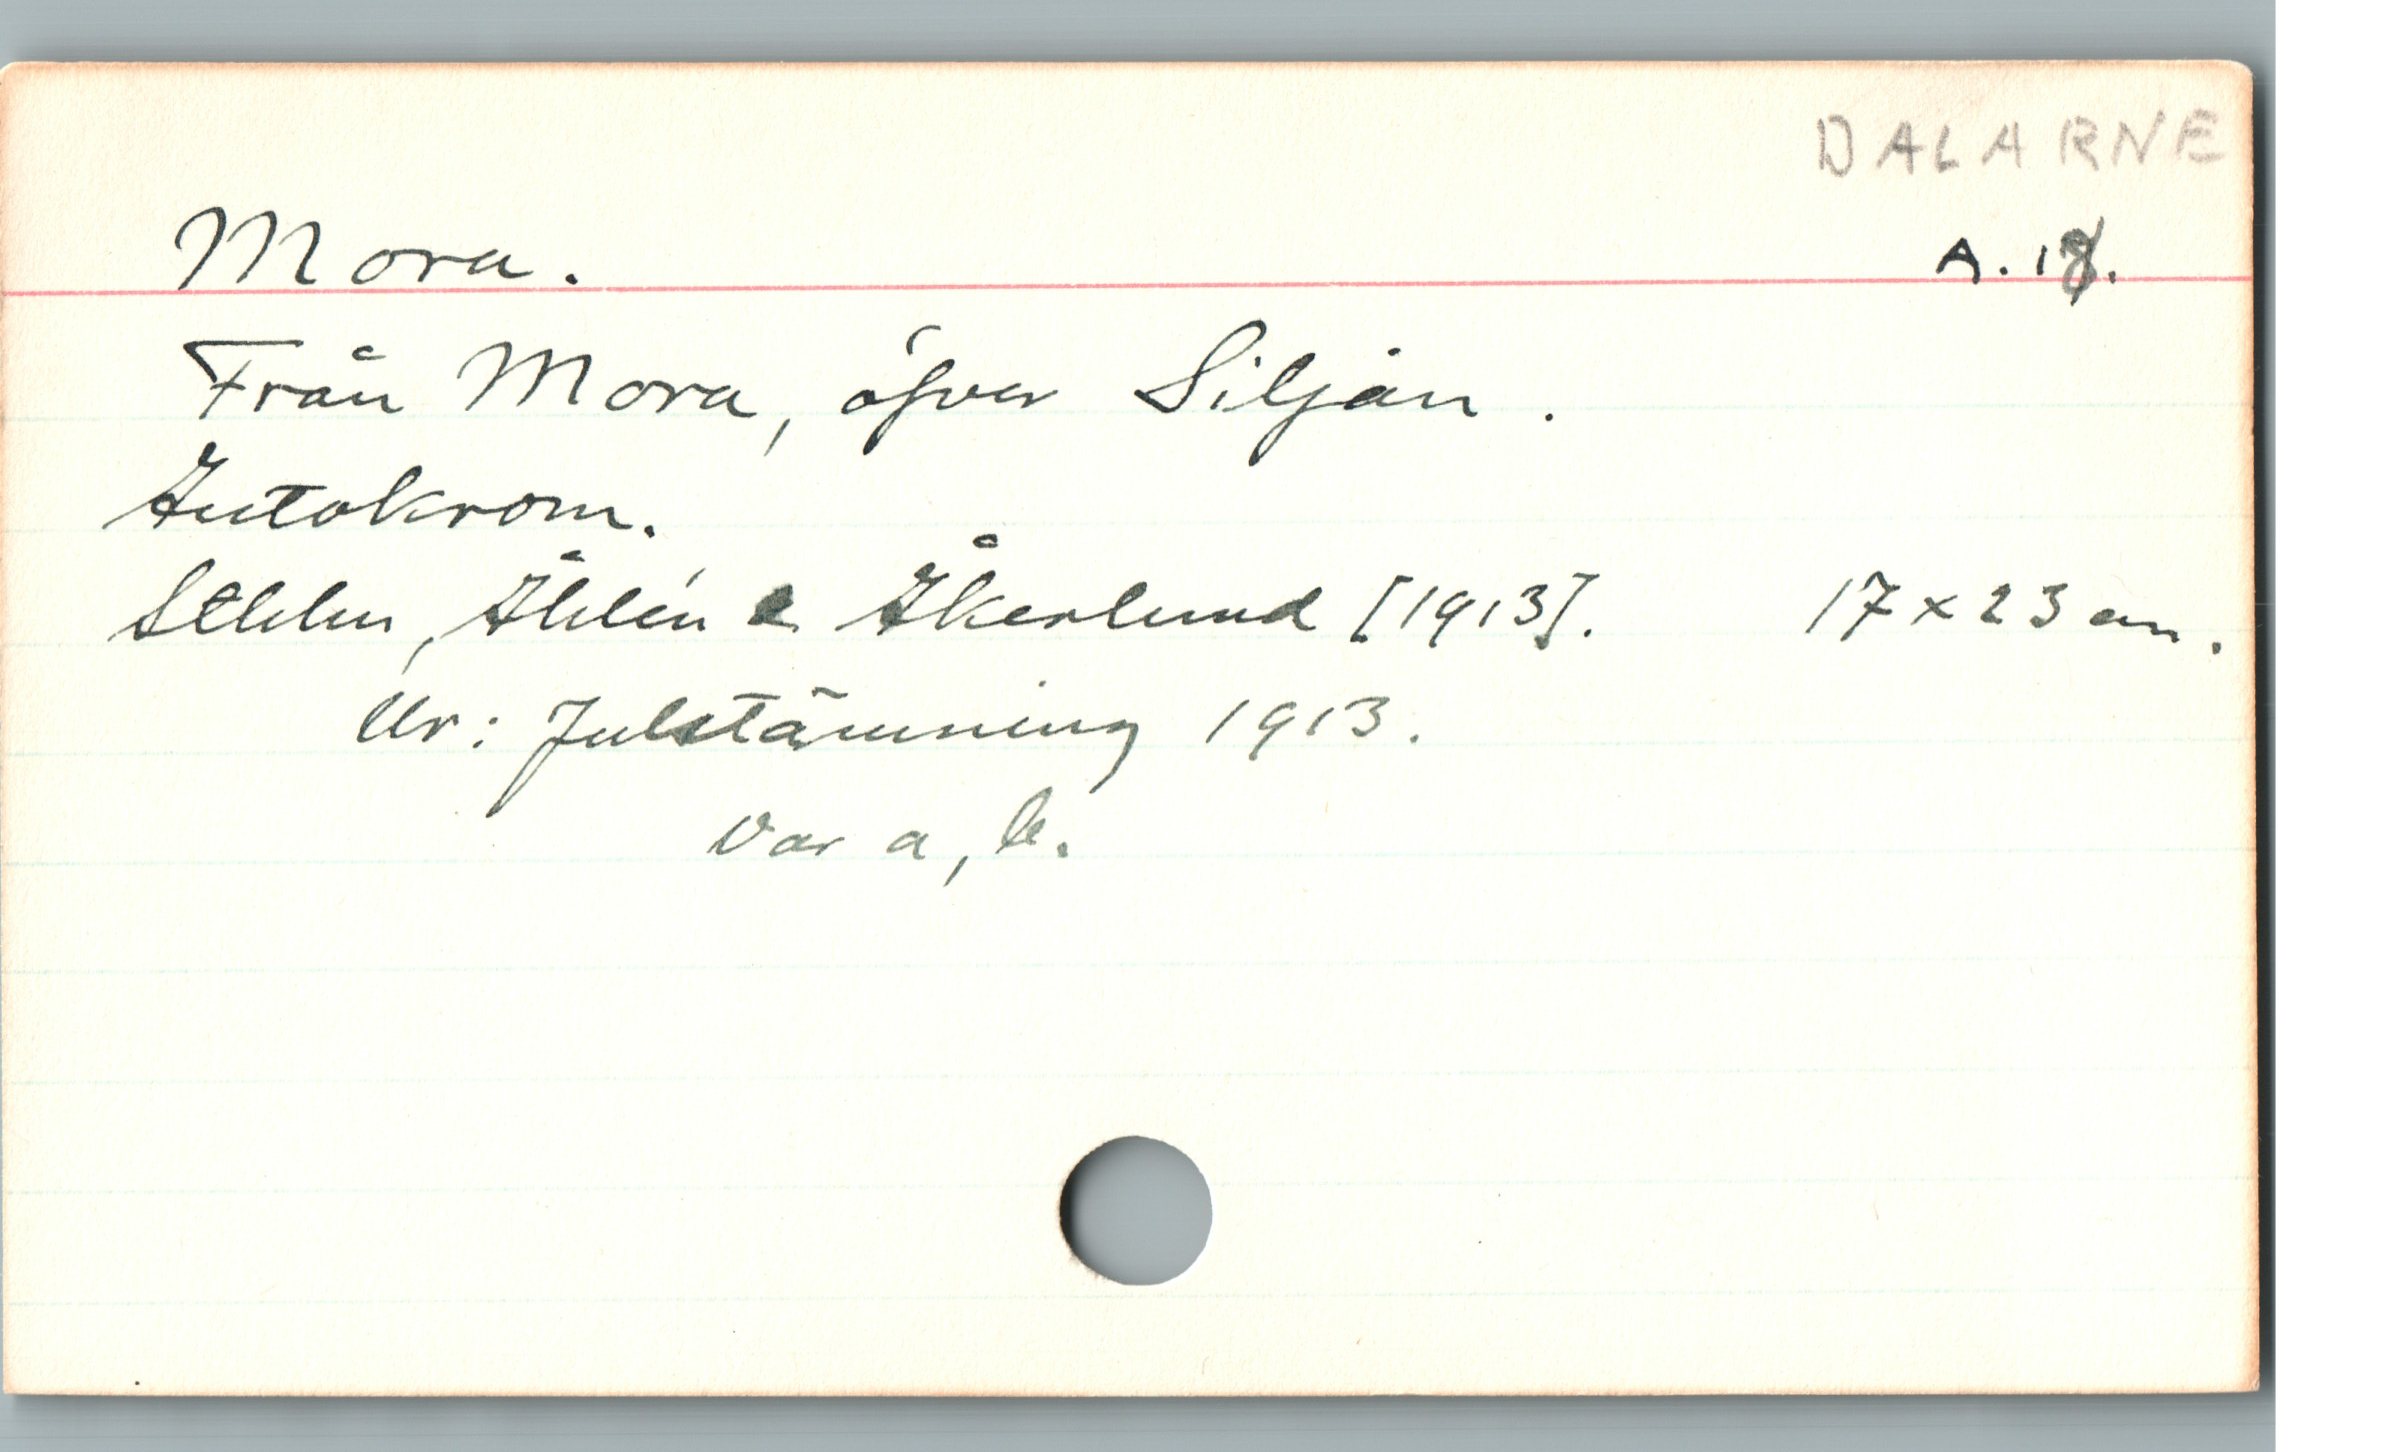 DALARNE
Mora. A. 18.
Från Mora, öfver Siljan.
Autokrom.
Sthlm, Åhlén & Åkerlund [1913]. 17 x 23 cm.
Ur: Julstämning 1913.
Var a, b.